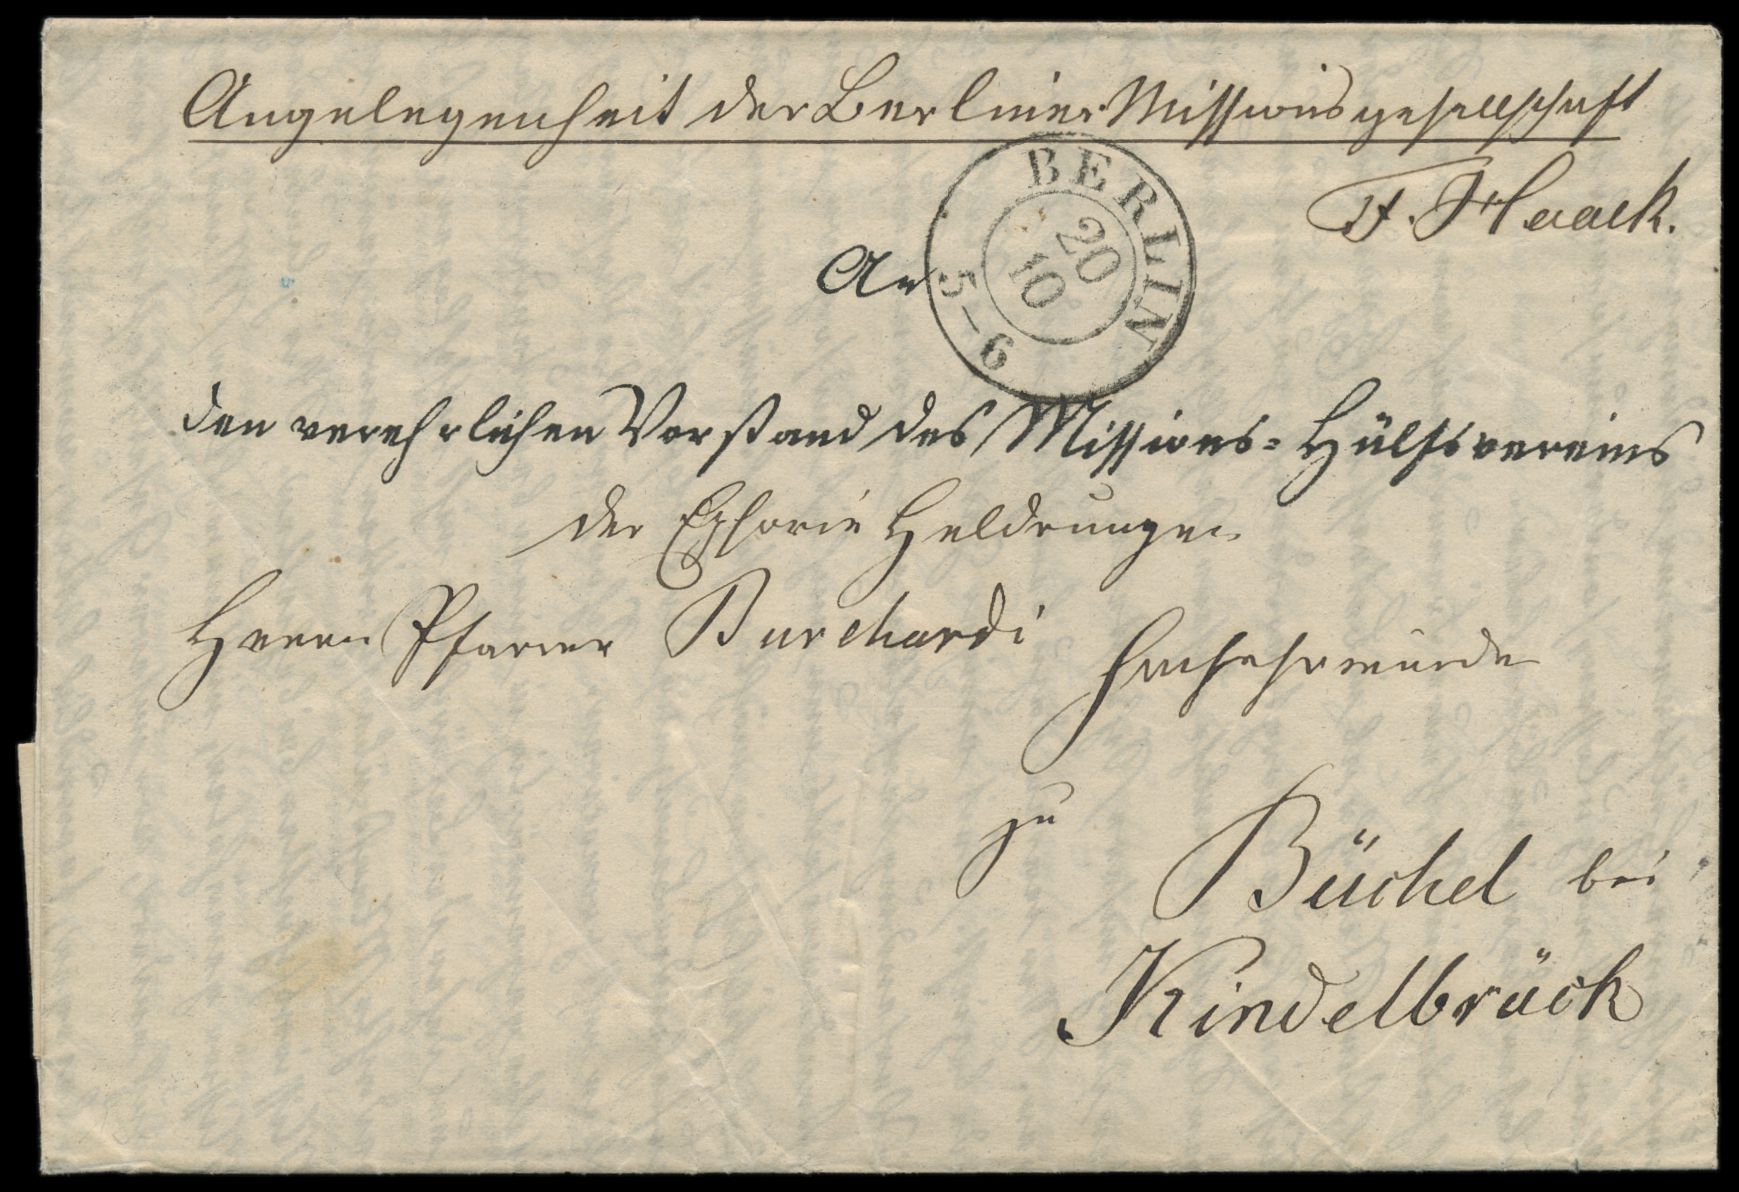 Angelegenheit der Berliner Missionsgesellschaft
F. Haack.
BERLIN
20
10
5–6
An
den verehrlichen Vorstand des Missions-Hülfsvereins
der Ephorie Heldrungen
Herrn Pfarrer Burchardi Hochehrwürden
zu
Büchel bei
Kindelbrück